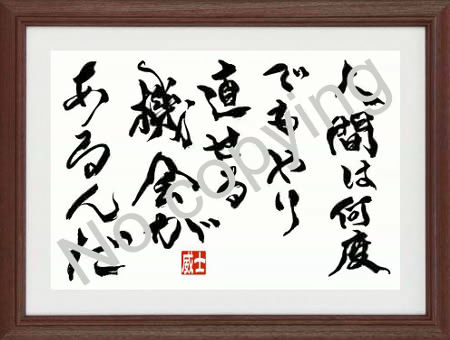 人間は何度
でもやり
直せる
機会が
あるんだ
威士
No copying